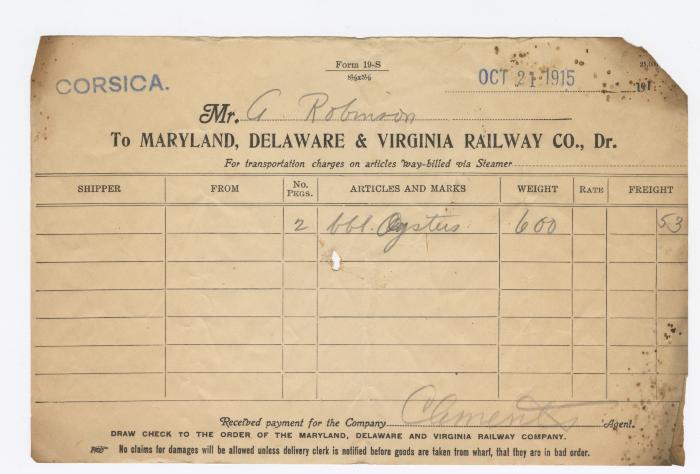 Form 19-S
8½x5½
CORSICA.
OCT 21 1915
191
Mr. A Robinson
To MARYLAND, DELAWARE & VIRGINIA RAILWAY CO., Dr.
For transportation charges on articles way-billed via Steamer
SHIPPER FROM No. PKGS. ARTICLES AND MARKS WEIGHT RATE FREIGHT
2 bbl. Oysters 600 53
Received payment for the Company Clements Agent.
DRAW CHECK TO THE ORDER OF THE MARYLAND, DELAWARE AND VIRGINIA RAILWAY COMPANY.
No claims for damages will be allowed unless delivery clerk is notified before goods are taken from wharf, that they are in bad order.